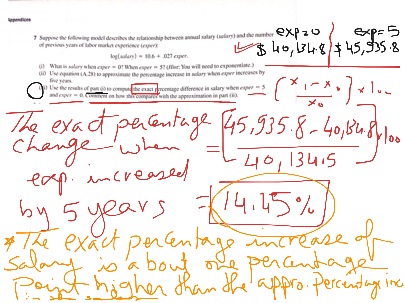 Appendices
exp=0
exp=5
$40,134.8
$45,935.8
7 Suppose the following model describes the relationship between annual salary (salary) and the number
of previous years of labor market experience (exper):
log(salary) = 10.6 + .027 exper.
(i) What is salary when exper = 0? When exper = 5? (Hint: You will need to exponentiate.)
(ii) Use equation (A.28) to approximate the percentage increase in salary when exper increases by
five years.
(iii) Use the results of part (i) to compute the exact percentage difference in salary when exper = 5
and exper = 0. Comment on how this compares with the approximation in part (ii).
(x₁ - x₀ / x₀) x 100
The exact percentage
change when
exp. increased
by 5 years
= [45,935.8 - 40,134.8 / 40,134.5] x100
= 14.45%
* The exact percentage increase of
salary is about one percentage
point higher than the appro. percentage inc